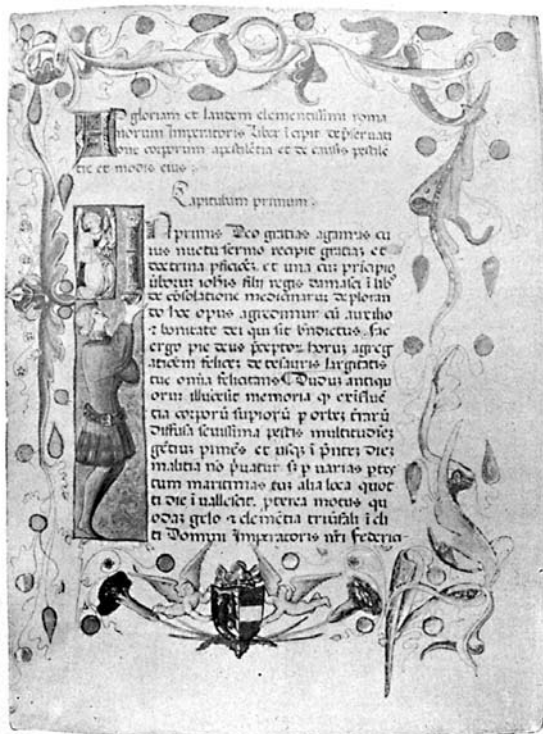 Ad gloriam et laudem clementissimi roma
norum Imperatoris Liber ĩcipit de p̃seruati
one corporum a pestilẽtia et de causis pestilẽ
tie et modis eius :
Capitulum primum .
IN primis Deo gratias agamus cu
ius nuctu sermo recipit gratiaʒ et
doctrina pficieʒ . et una cuʒ prĩcipio
libroruʒ iohĩs filii regis damasci ĩ lib
de cõsolatione medicinaruʒ deploran
do hoc opus agredimur cũ auxilio
⁊ bonitate dei qui sit bñdictus . fac
ergo pie deus p̃ceptor horuʒ agreg
ationem feliceʒ de tesauris largitatis
tue omĩa felicitans Duduʒ antiquo
oruʒ illucesit memoria qʒ ex
tia corporũ supioruʒ p orbeʒ
diffusa seuissima pestis multitudĩeʒ
gẽtiuʒ et usqʒ ĩ diez
malitia nõ si p varias
tum maritimas tuʒ alia loca quot
ti die ĩ uallescit . pterea motus qu
odaʒ ⁊ clemẽtia ĩcli
ti Domini Imperatoris nr̃i federici